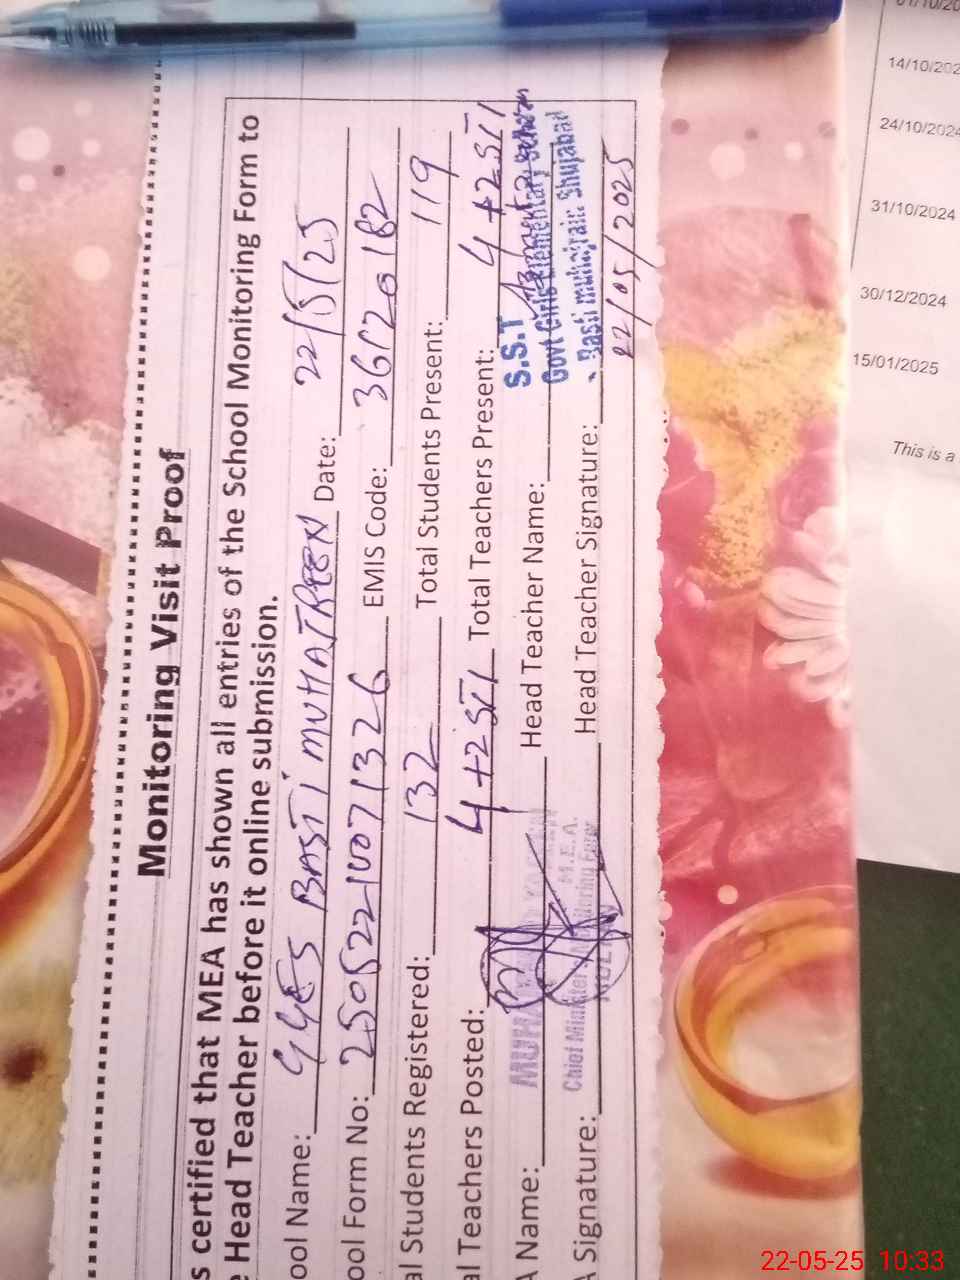 Monitoring Visit Proof
s certified that MEA has shown all entries of the School Monitoring Form to
e Head Teacher before it online submission.
ool Name: GGES BASTI MUHAJREEN Date: 22/5/25
ool Form No: 25052210071326 EMIS Code: 36120182
al Students Registered: 132 Total Students Present: 119
al Teachers Posted: 4+2 STI Total Teachers Present: 4+2 STI
A Name: Head Teacher Name: S.S.T
Govt Girls Elementary School
A Signature: Chief Minister Monitoring Force M.E.A. Head Teacher Signature: Basti muhajrain Shujabad
22/05/2025
14/10/202
24/10/2024
31/10/2024
30/12/2024
15/01/2025
This is a
22-05-25 10:33